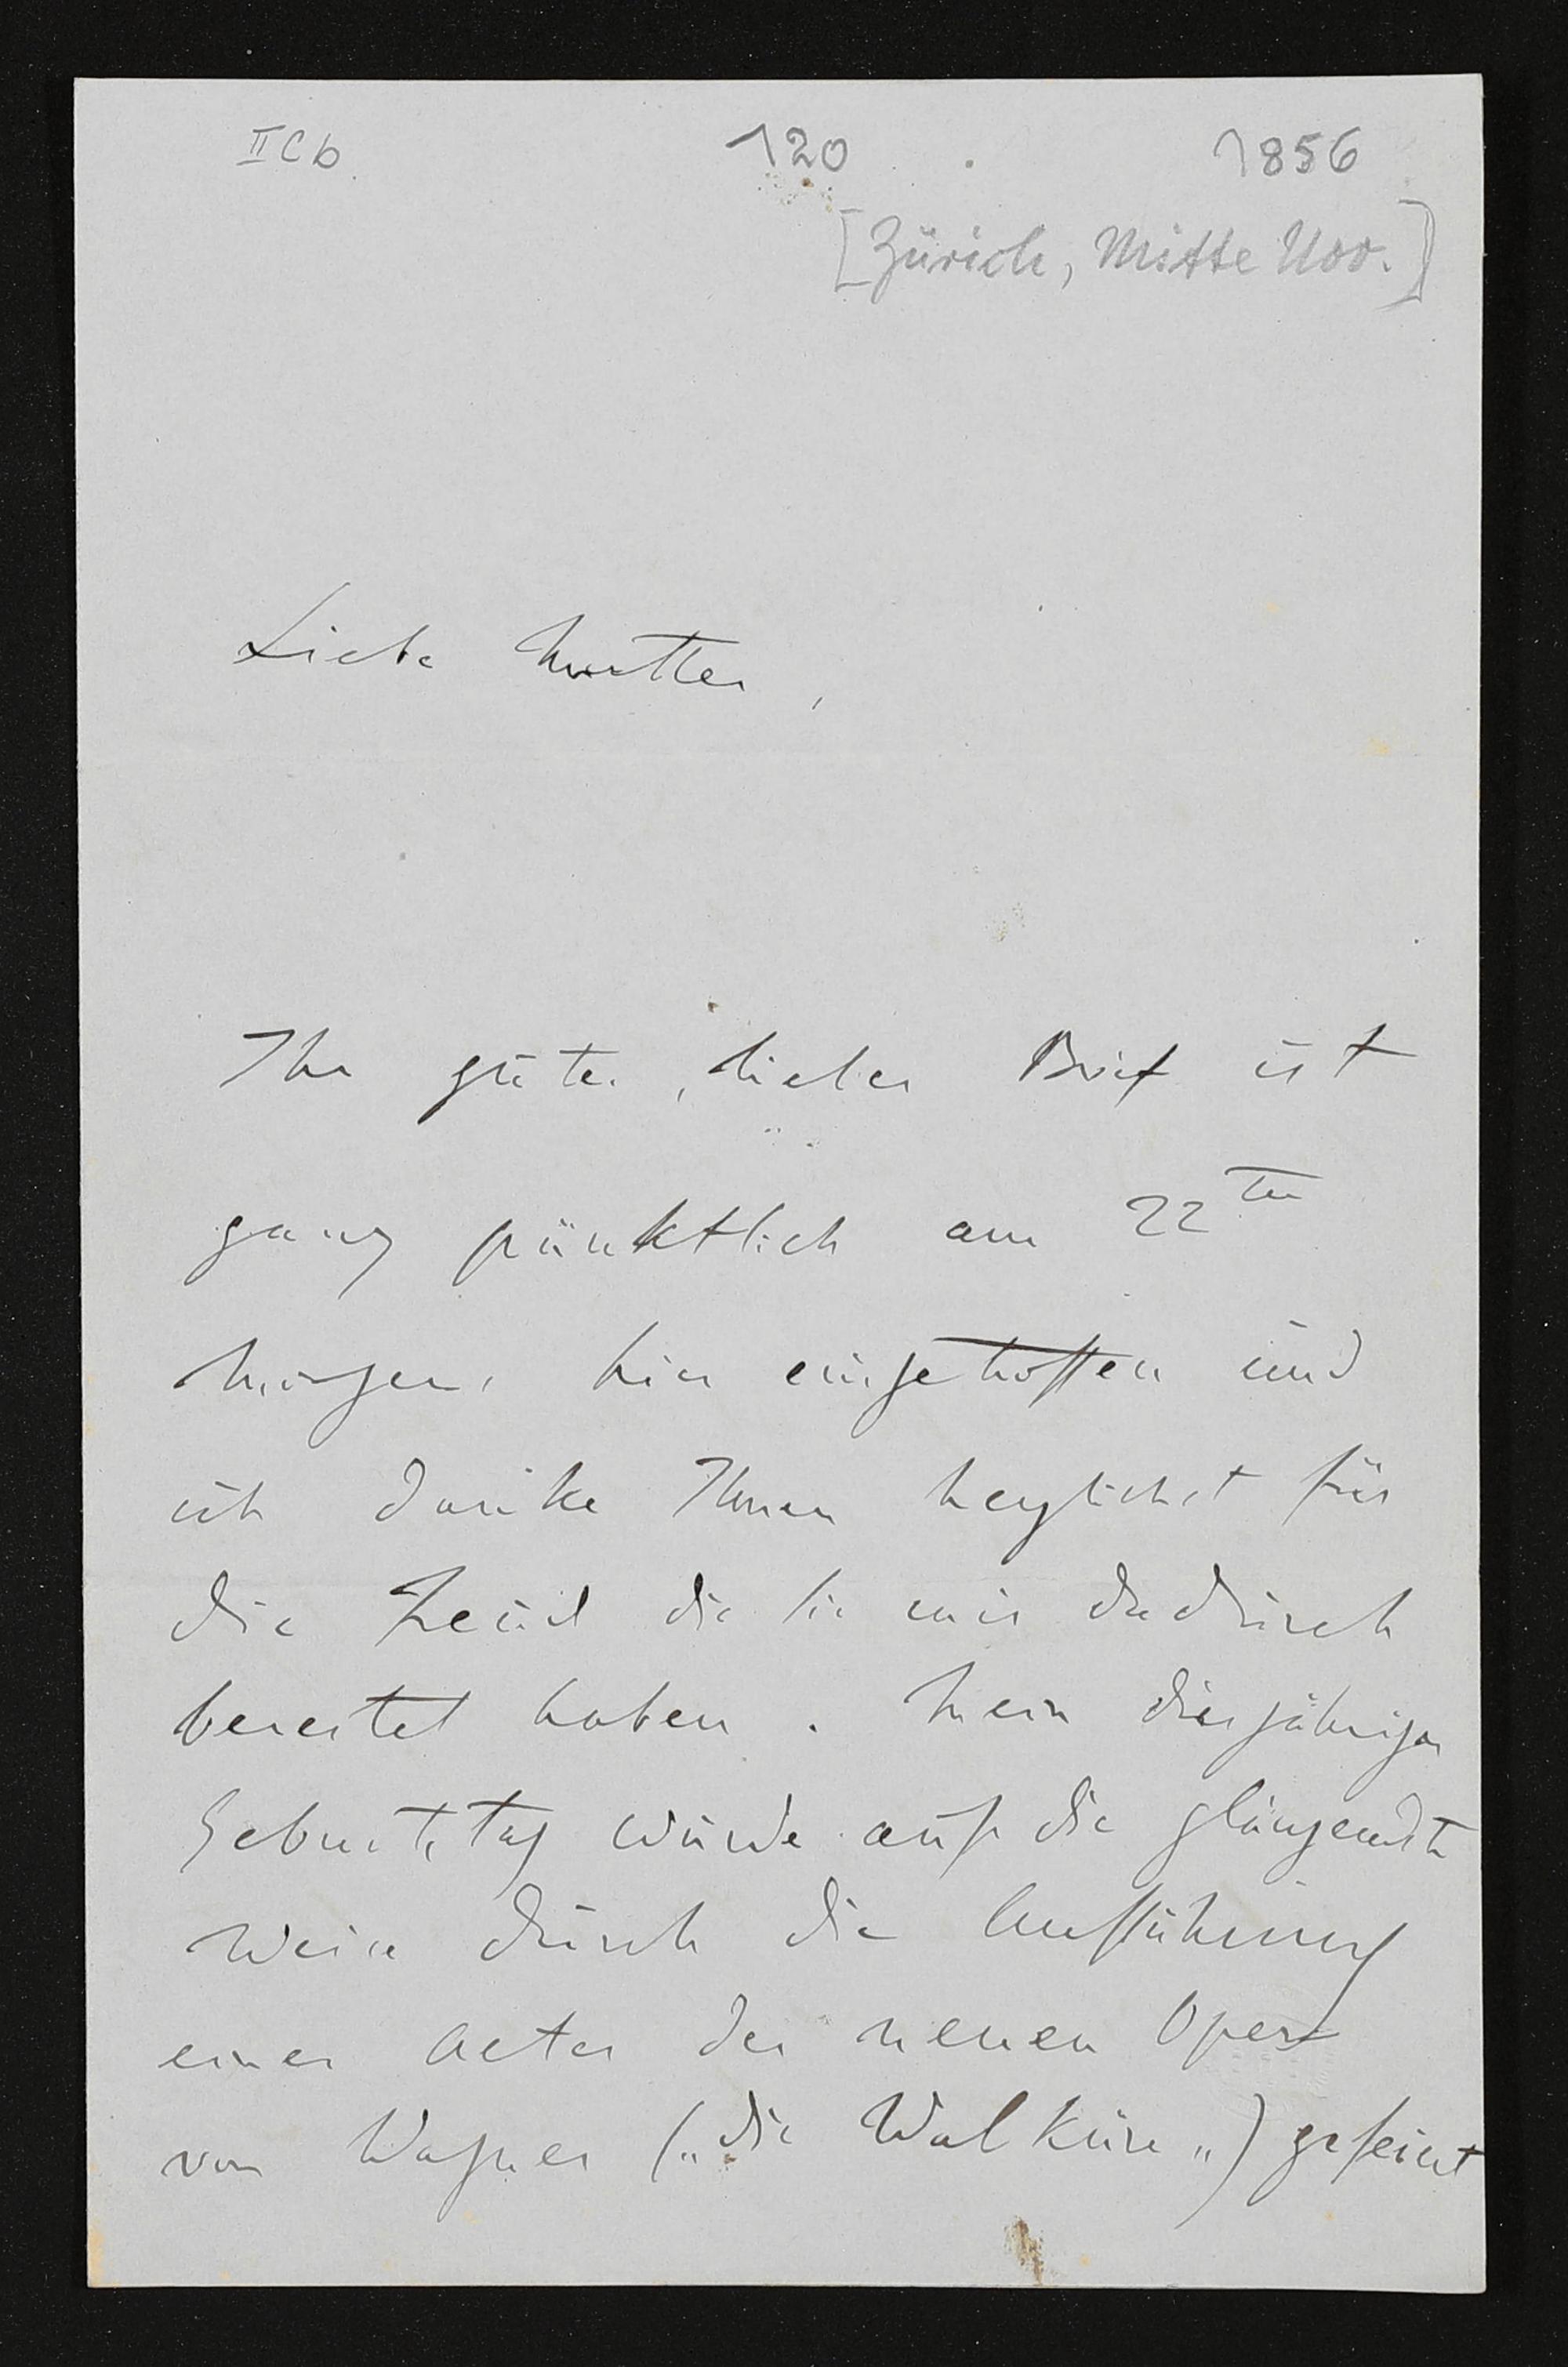 II C b 120 1856
[Zürich, Mitte Nov.]
Liebe Mutter,
Ihr guter, lieber Brief ist
ganz pünktlich am 22ten
Morgens hier eingetroffen und
ich danke Ihnen herzlichst für
die Freud die Sie mir dadurch
bereitet haben. Mein diesjähriger
Geburtstag wurde auf die glänzendste
Weise durch die Aufführung
eines Actes der neuen Oper
von Wagner („die Walküre„) gefeiert